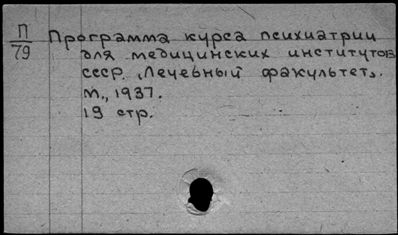 П
79
Программа курса психиатрии
для медицинских институтов
СССР. „Лечебный факультет".
М., 1937.
19 стр.